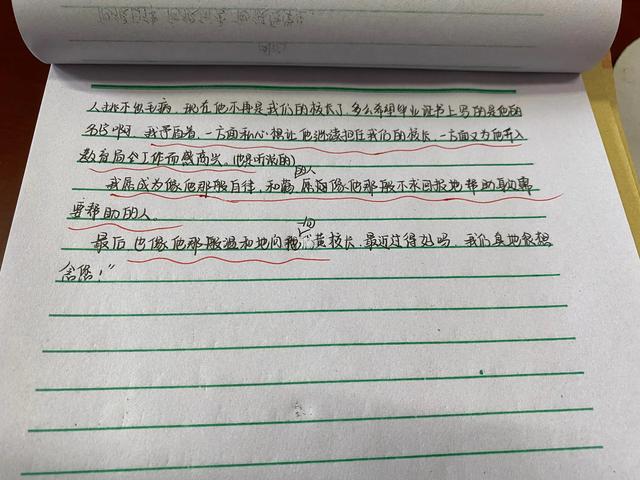 人挑不出毛病。现在他不再是我们的校长了，多么希望毕业证书上写的是他的
名字啊。我矛盾着，一方面私心想让他继续担任我们的校长，一方面又为他升入
教育局会工作而感高兴。（他是听说的）
我愿成为像他那般自律，和蔼的人，愿海像他那般不求回报地帮助身边需
要帮助的人。
最后也像他那般温和地问一句“黄校长，最近过得好吗，我们真地很想
念您！”